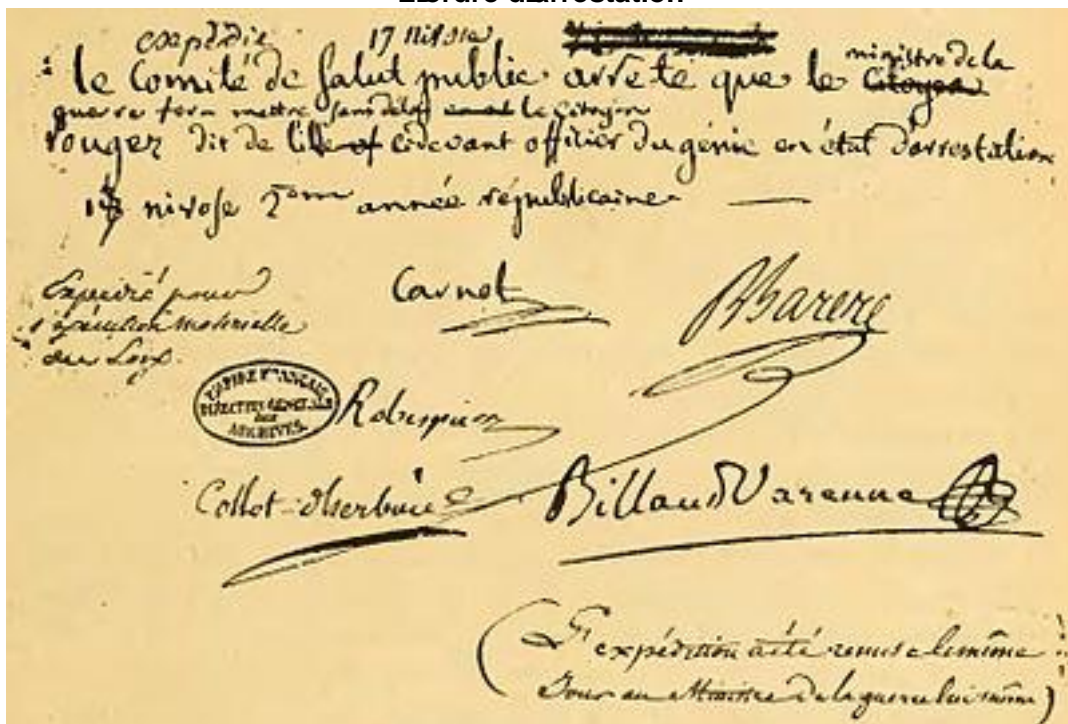 L'Ordre d'arrestation
expédié 17 nivose
le Comité de Salut public arrete que le ministre de la
guerre fera mettre sans délai le Citoyen
rouger dit de lille cidevant officier du génie en état d'arrestation
18 nivose 2eme année républicaine
Carnot
BBarere
Expédié pour
l'exécution
des Loix.
EMPIRE FRANÇAIS
DIRECTION GENERALE
DES
ARCHIVES.
Robespierre
Collot-d'herbois
Billaud Varenne
(L' expédition a été remise le même
Jour au Ministre de la guerre lui même)